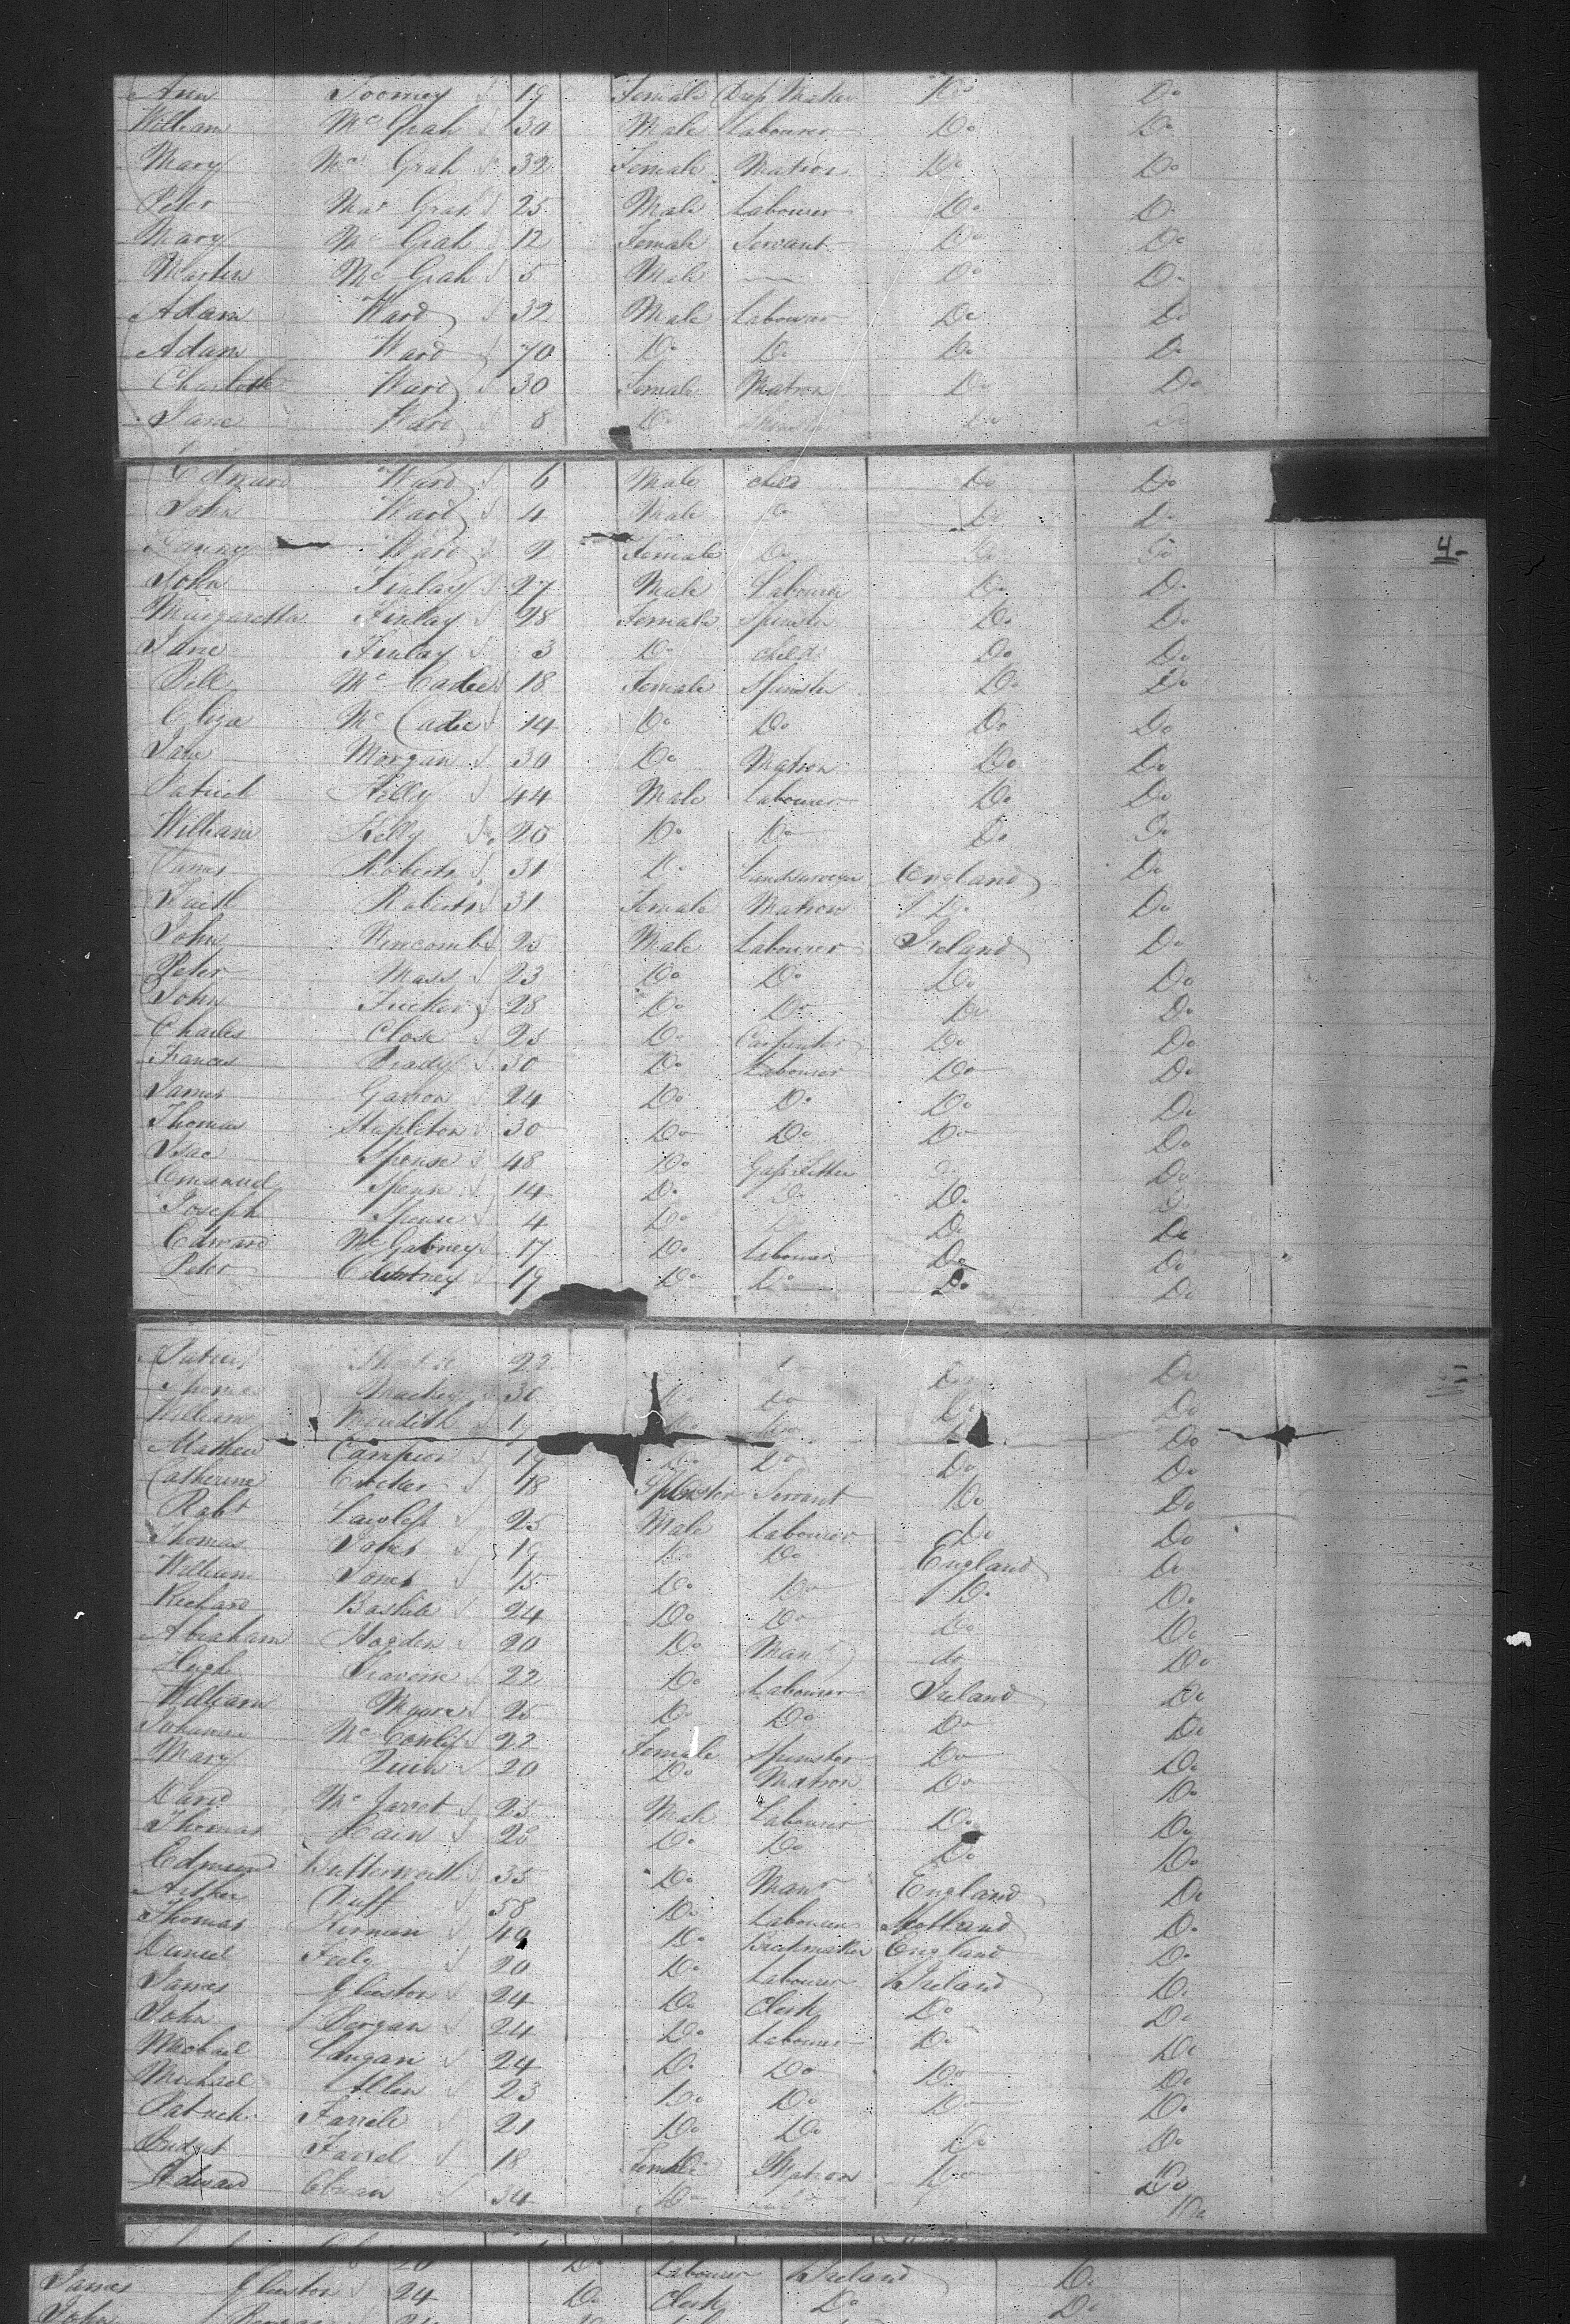 Ann Toomey 19 Female Dress Maker Do Do
William Mc Grah 30 Male Labourer Do Do
Mary Mc Grah 32 Female Matron Do Do
Peter Mc Grah 25 Male Labourer Do Do
Mary Mc Grah 12 Female Servant Do Do
Martin Mc Grah 5 Male Do Do
Adam Ward 32 Male Labourer Do Do
Adam Ward 70 Do Do Do Do
Charlotte Ward 30 Female Matron Do Do
Jane Ward 8 Do Do Do
Edward Ward 6 Male child Do Do
John Ward 4 Male Do Do Do
Fanny Ward 2 Female Do Do Do
4-
John Finlay 27 Male Labourer Do Do
Margaretta Finlay 28 Female Spinster Do Do
Jane Finlay 3 Do child Do Do
Bell Mc Cabe 18 Female Spinster Do Do
Eliza Mc Cabe 14 Do Do Do Do
Jane Morgan 30 Do Matron Do Do
Patrick Kelly 44 Male Labourer Do Do
William Kelly 20 Do Do Do Do
James Roberts 31 Do Landsurveyor England Do
Faith Roberts 31 Female Matron Do Do
John Newcomb 25 Male Labourer Ireland Do
Peter Mass 23 Do Do Do Do
John Tucker 28 Do Do Do Do
Charles Close 25 Do Carpenter Do Do
Frances Brady 30 Do Labourer Do Do
James Garron 24 Do Do Do Do
Thomas Stapleton 30 Do Do Do Do
Isaac Spense 48 Do Gass Fitter Do Do
Emanuel Spense 14 Do Do Do Do
Joseph Spense 4 Do Do Do
Edward Mc Gabney 17 Do Labourer Do Do
Peter Courtney 19 Do Do Do Do
22 Do Do
Thomas Mackey 30 Do Do Do Do
William Meredith 19 Do Do Do
Mathew Campion 19 Do Do Do Do
Catherine 18 Spinster Servant Do Do
Robt Lawless 25 Male Labourer Do Do
Thomas Jones 19 Do Do England Do
William Jones 15 Do Do Do Do
Richard 24 Do Do Do Do
Abraham Hogden 20 Do Man do Do
Hugh 22 Do Labourer Ireland Do
William Myars 25 Do Do Do Do
Johanna 22 Female Spinster Do Do
Mary Quin 20 Do Matron Do Do
David 25 Male Labourer Do Do
Thomas Cain 28 Do Do Do Do
Edmund Butterworth 35 Do Man England Do
Arther Duff 58 Do Labourer Scotland Do
Thomas Kirnan 49 Do Brickmaker England Do
Daniel Feely 20 Do Labourer Ireland Do
James Gleeston 24 Do Clerk Do Do
John Bergan 24 Do Labourer Do Do
Michael Langan 24 Do Do Do Do
Michael Allen 23 Do Do Do Do
Patrick Farrile 21 Do Do Do Do
Bridget Farrel 18 Female Matron Do Do
Edward 34 Do Do
20 Do Labourer Ireland
James Gleeston 24 Do Clerk Do Do
John Do